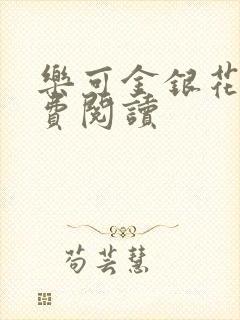 樂可金銀花
費閱讀
苟芸慧